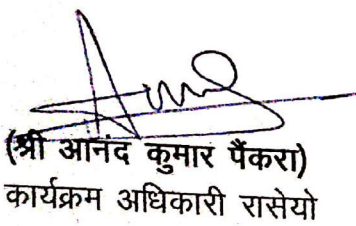 (श्री आनंद कुमार पैंकरा)
कार्यक्रम अधिकारी रासेयो